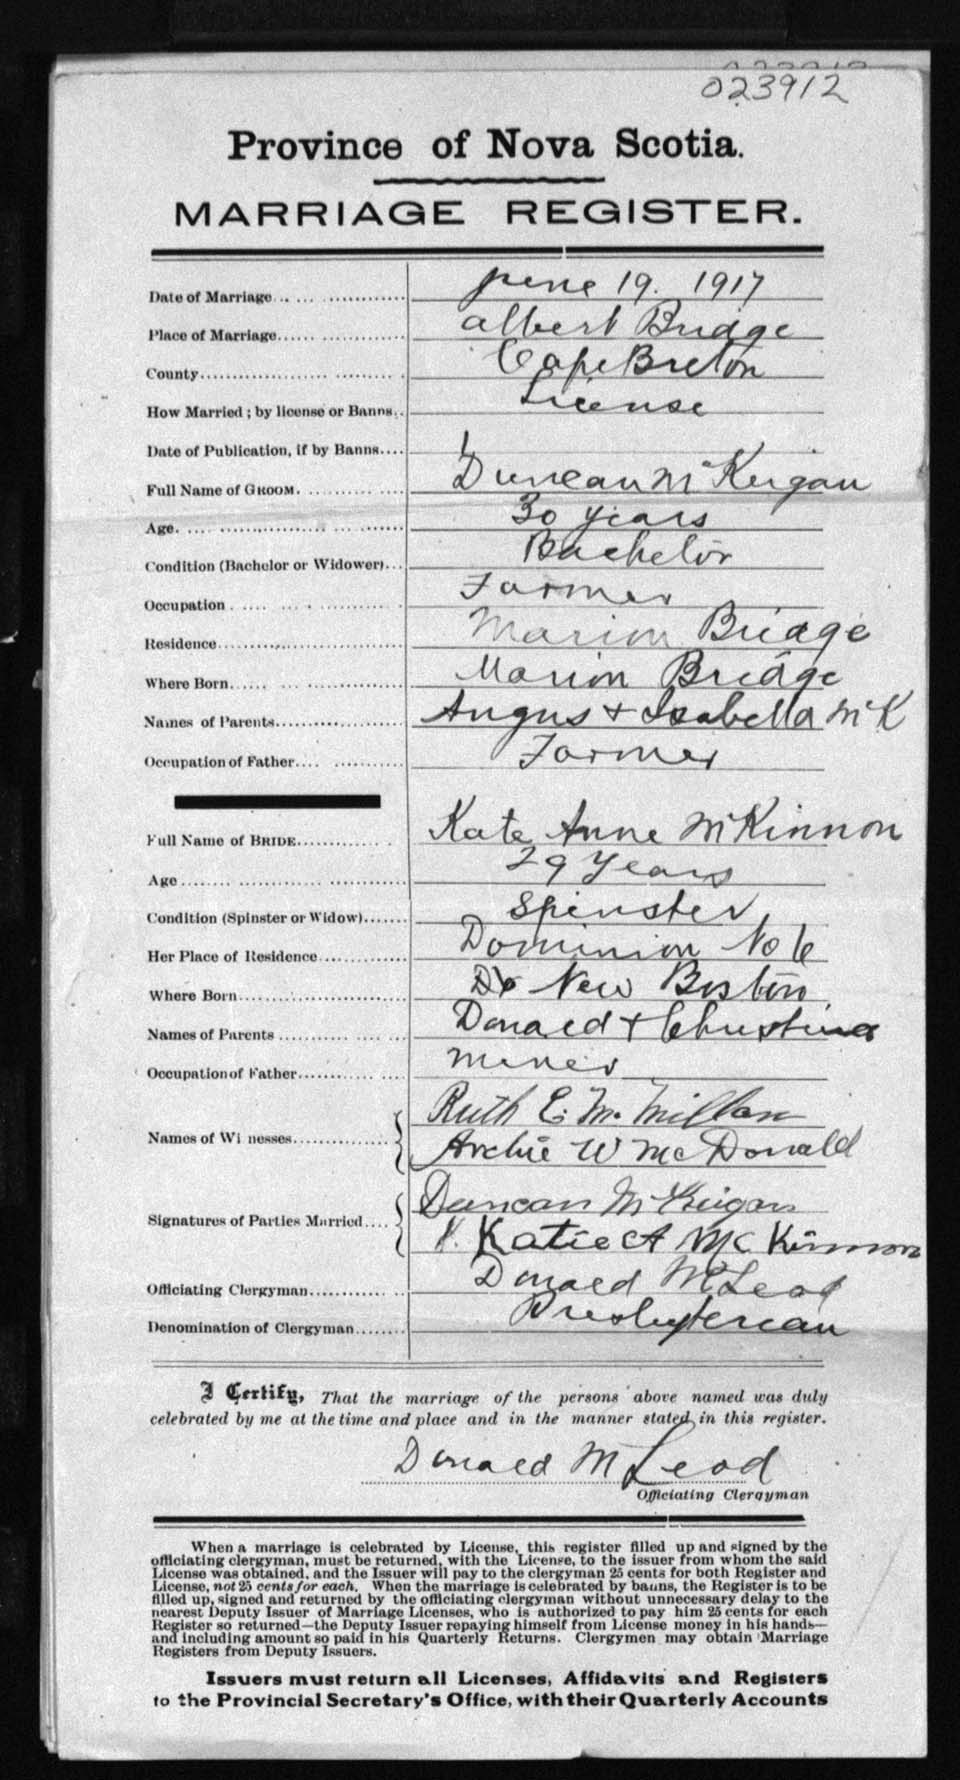 023912
Province of Nova Scotia.
MARRIAGE REGISTER.
Date of Marriage... June 19. 1917
Place of Marriage... Albert Bridge
County... Cape Breton
How Married; by license or Banns... License
Date of Publication, if by Banns....
Full Name of GROOM. Duncan McKeigan
Age. 30 years
Condition (Bachelor or Widower)... Bachelor
Occupation. Farmer
Residence... Marion Bridge
Where Born... Marion Bridge
Names of Parents... Angus + Isabella McK
Occupation of Father.... Farmer
Full Name of BRIDE... Kate Anne McKinnon
Age... 29 Years
Condition (Spinster or Widow)... Spinster
Her Place of Residence... Dominion No 6
Where Born... New Boston
Names of Parents... Donald + Christina
Occupation of Father... Miner
Names of Wi nesses... Ruth E. McMillan
Archie W McDonald
Signatures of Parties Married.... Duncan McKeigan
K. Katie A McKinnon
Officiating Clergyman... Donald McLeod
Denomination of Clergyman... Presbyterean
I Certify, That the marriage of the persons above named was duly
celebrated by me at the time and place and in the manner stated in this register.
Donald McLeod
Officiating Clergyman
When a marriage is celebrated by License, this register filled up and signed by the
officiating clergyman, must be returned, with the License, to the issuer from whom the said
License was obtained, and the Issuer will pay to the clergyman 25 cents for both Register and
License, not 25 cents for each. When the marriage is celebrated by banns, the Register is to be
filled up, signed and returned by the officiating clergyman without unnecessary delay to the
nearest Deputy Issuer of Marriage Licenses, who is authorized to pay him 25 cents for each
Register so returned—the Deputy Issuer repaying himself from License money in his hands—
and including amount so paid in his Quarterly Returns. Clergymen may obtain Marriage
Registers from Deputy Issuers.
Issuers must return all Licenses, Affidavits and Registers
to the Provincial Secretary's Office, with their Quarterly Accounts